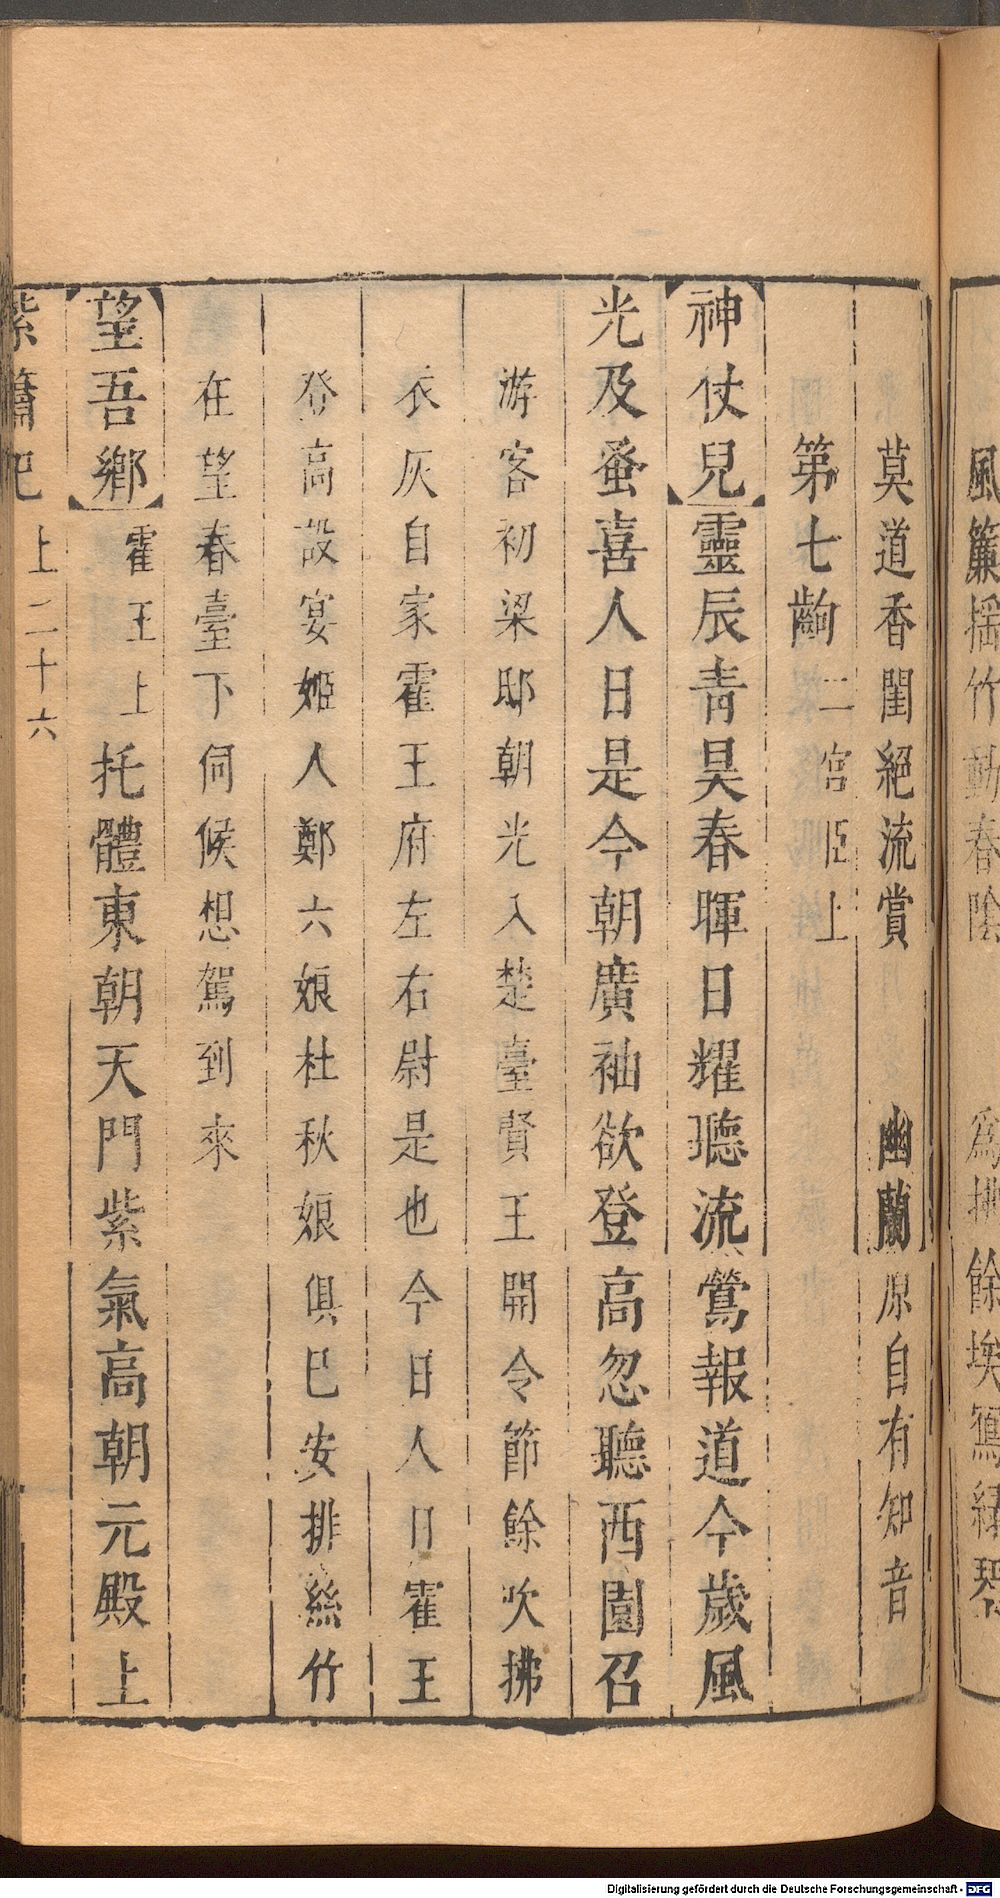 風簾搖竹動春陰　爲拂餘埃寫綠琴
莫道香閨絕流賞　幽蘭原自有知音
第七齣 二宮臣上
【神仗兒】靈辰青昊春暉日耀聽流鶯報道今歲風
光及蚤喜人日是今朝廣袖欲登高忽聽西園召
游客初梁邸朝光入楚臺賢王開令節餘吹拂
衣灰自家霍王府左右尉是也今日人日霍王
登高設宴姬人鄭六娘杜秋娘俱已安排絲竹
在望春臺下伺候想駕到來
【望吾鄉】霍王上托體東朝天門紫氣高朝元殿上
紫簫記 上 二十六
Digitalisierung gefördert durch die Deutsche Forschungsgemeinschaft - DFG